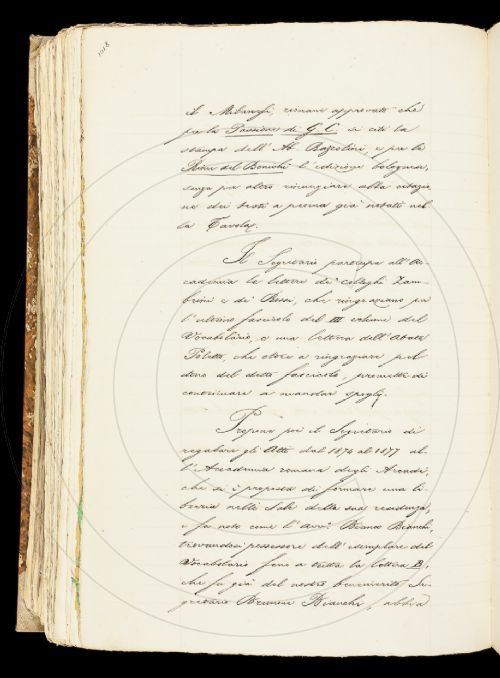 1018
il Milanesi, rimane approvato che
per la Passione di G. C. si citi la
stampa dell' Ab. Razzolini, e per le
Rime del Bonichi l' edizione bolognese,
senza per altro rinunziare alla citazio
ne dei testi a penna già notati nel
la Tavola.
Il Segretario partecipa all' Ac-
cademia le lettere de' colleghi Zam-
brini e de' Rossi, che ringraziano per
l' ultimo fascicolo del III volume del
Vocabolario, e una lettera dell' Abate
Poletto, che oltre a ringraziare pel
dono del detto fascicolo, promette di
continuare a mandar spogli.
Propone poi il Segretario di
regalare gli Atti dal 1874 al 1877 al-
l' Accademia romana degli Arcadi,
che si è proposta di formare una li-
breria nelle Sale della sua residenza,
e fa noto come l' Avv. Bianchi
trovandosi possessore dell' esemplare del
Vocabolario fino a tutta la lettera B,
che fu già del nostro benemerito Se-
gretario Brunone Bianchi, abbia